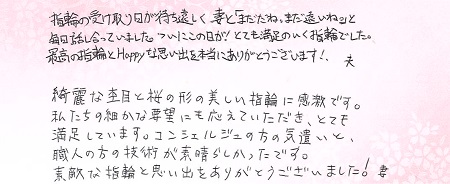 指輪の受け取り日が待ち遠しく妻と「まだだね、まだ遠いね」と
毎日話し合っていました。ついにこの日が！とても満足のいく指輪でした。
最高の指輪とHappyな思い出を本当にありがとうございます！ 夫
綺麗な杢目と桜の形の美しい指輪に感激です。
私たちの細かな要望にも応えていただき、とても
満足しています。コンシェルジュの方の気遣いと、
職人の方の技術が素晴らしかったです。
素敵な指輪と思い出をありがとうございました！ 妻